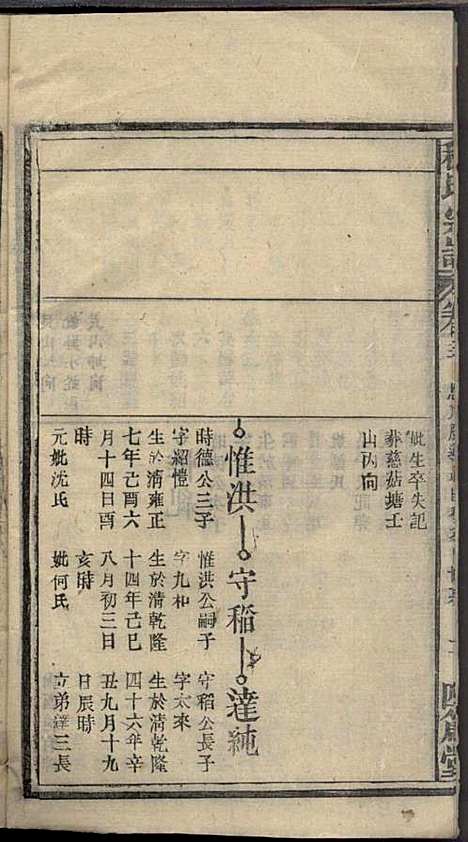 妣生卒失記
葬慈菇塘士
山丙向
惟洪
守稲
達純
時德公三子
字紹愷
生於清雍正
七年己酉六
月十四日酉
時
元妣沈氏
惟洪公嗣子
字九和
生於清乾隆
十四年己巳
八月初三日
亥時
妣何氏
守稻公長子
字太來
生於清乾隆
四十六年辛
丑九月十九
日辰時
立弟達三長